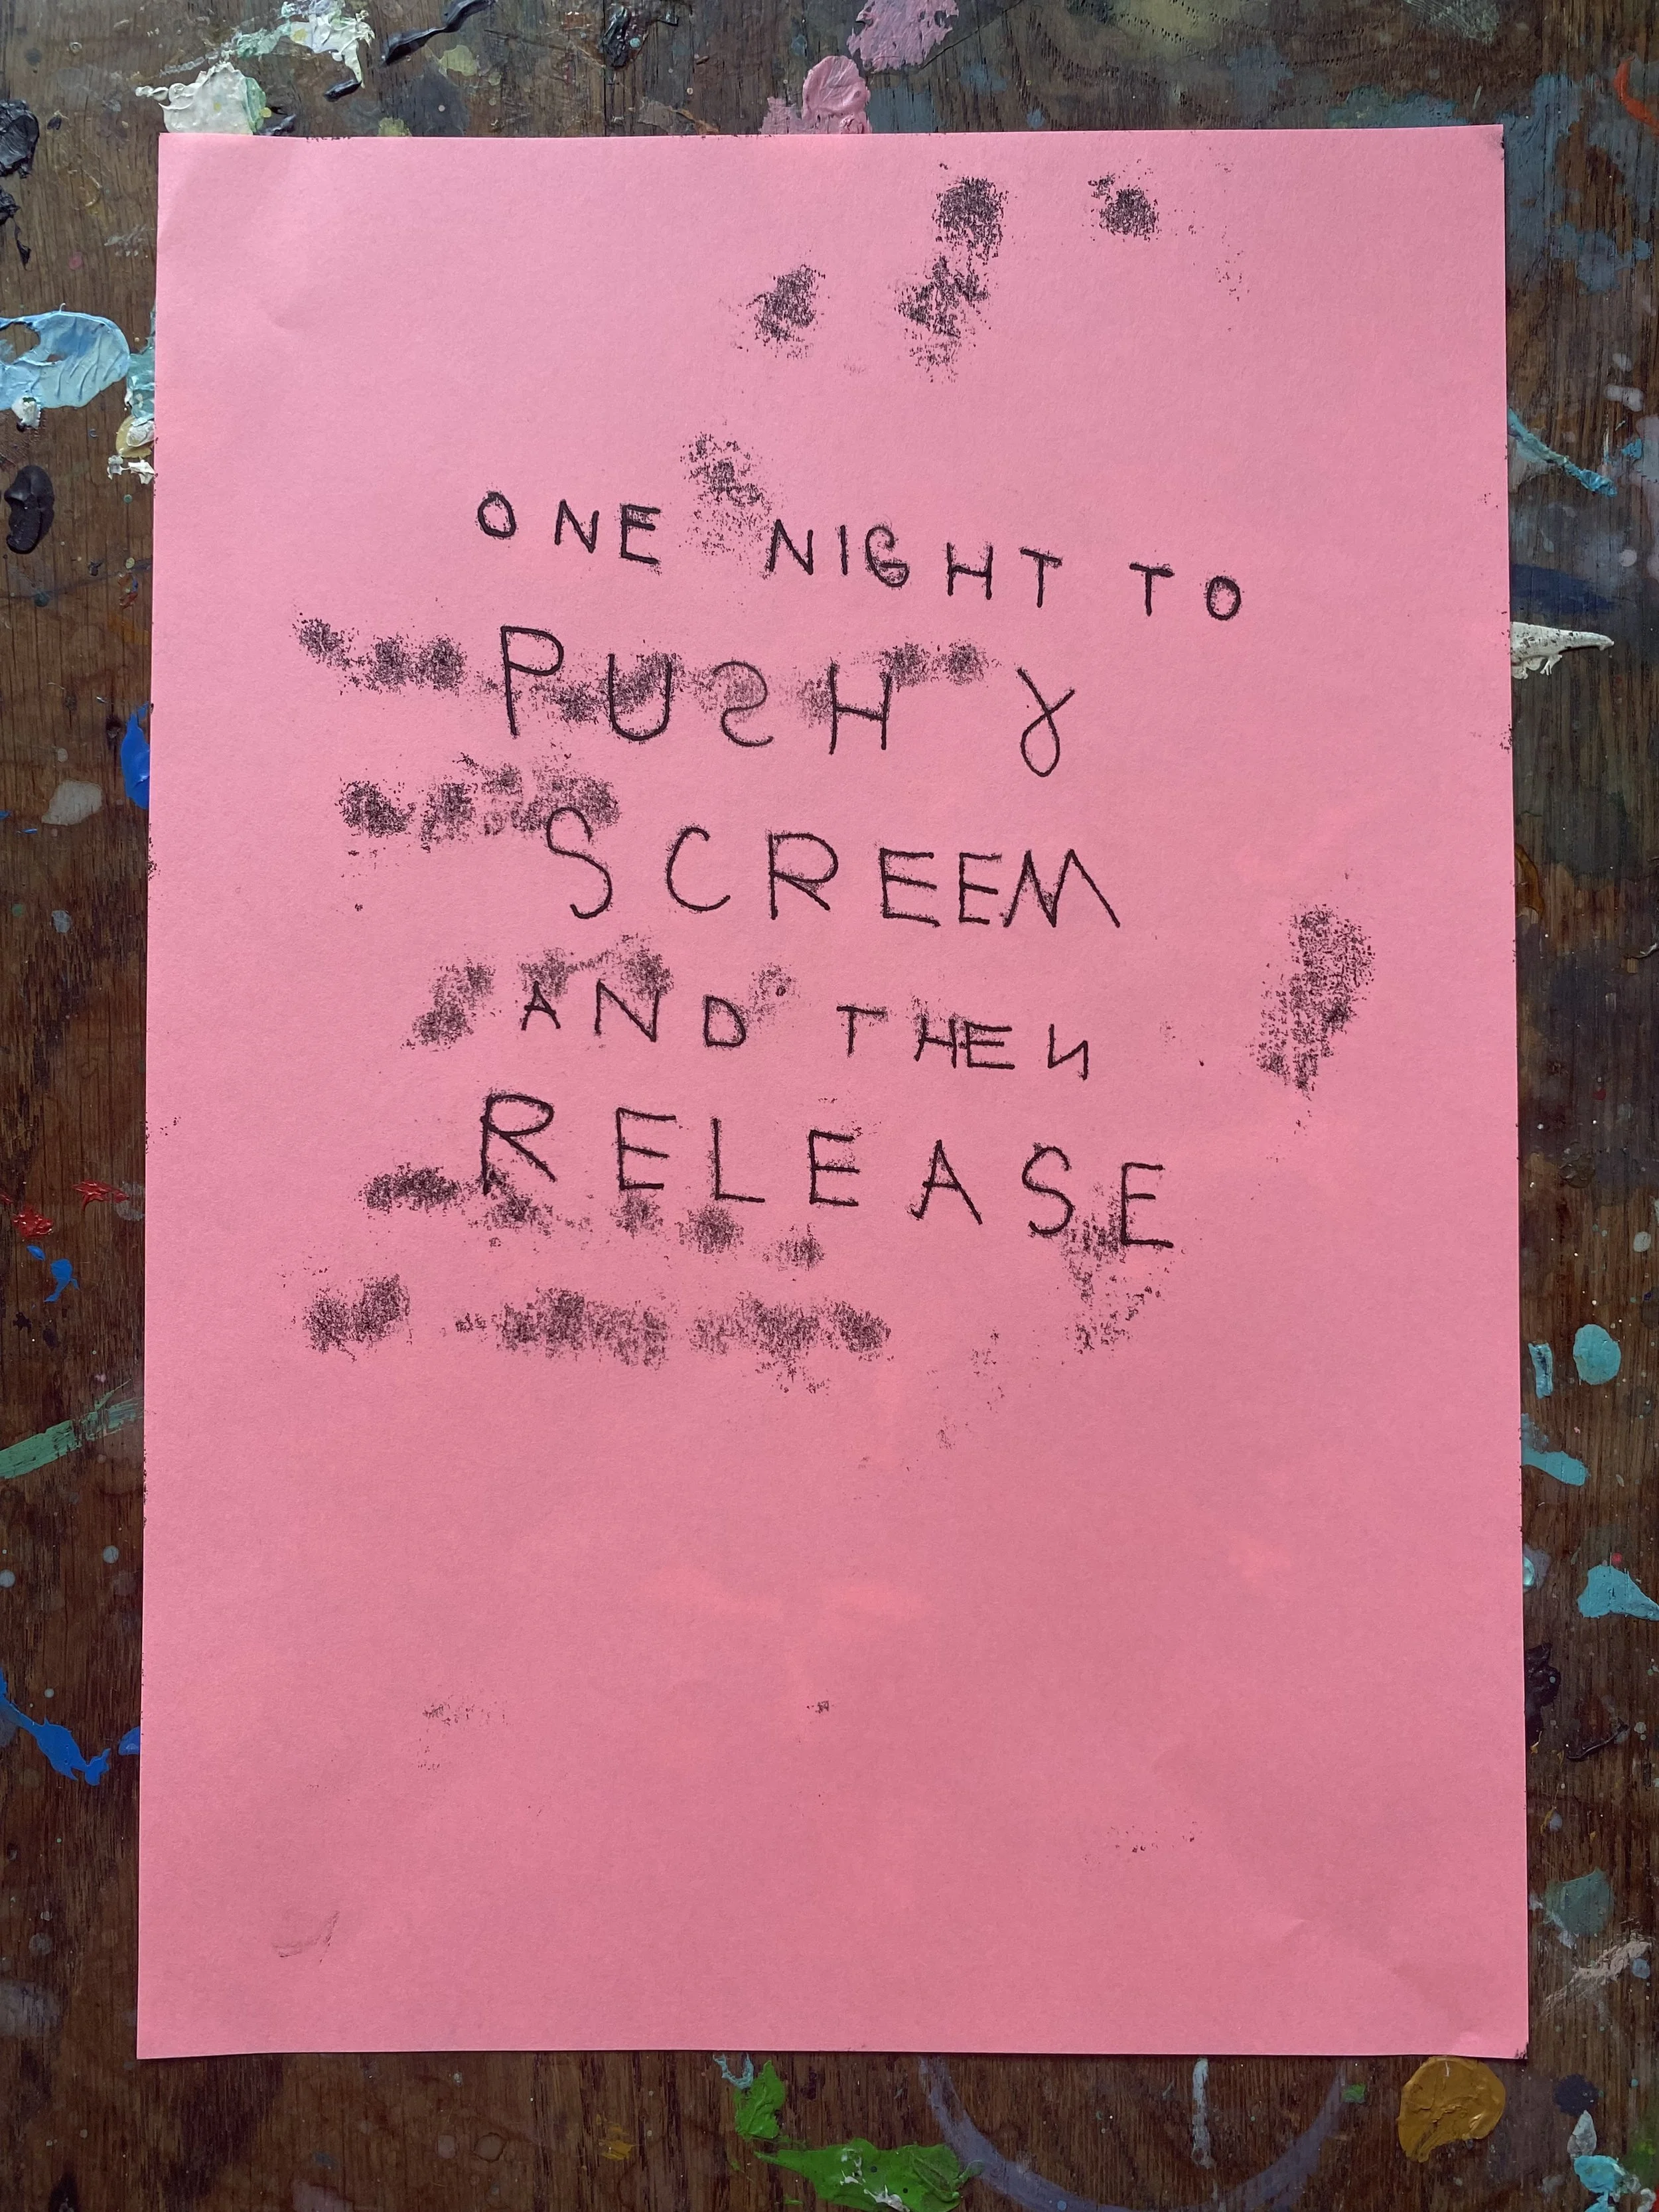 ONE NIGHT TO
PUSH &
SCREEM
AND THEN
RELEASE